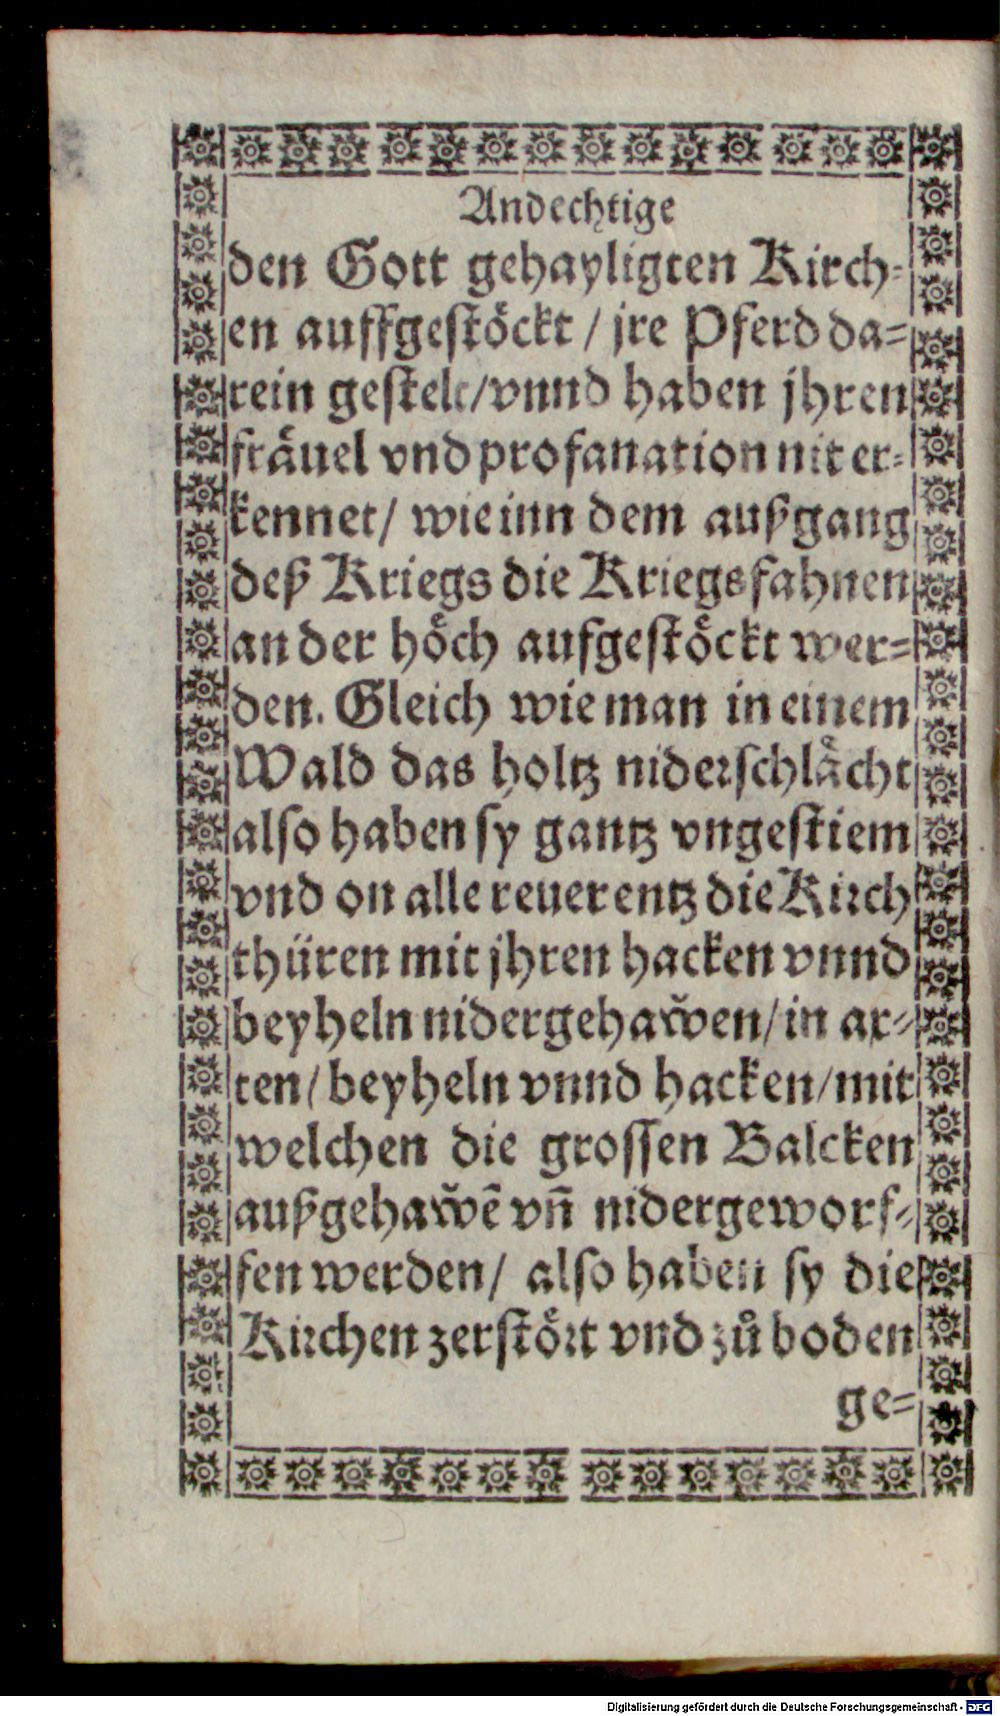 Andechtige
den Gott gehayligten Kirch-
en auffgestöckt / jre Pferd da-
rein gestelt/vnnd haben jhren
fräuel vnd profanation nit er-
kennet/ wie inn dem außgang
deß Kriegs die Kriegsfahnen
an der höch aufgestöckt wer-
den. Gleich wie man in einem
Wald das holtz niderschlächt
also haben sy gantz vngestiem
vnd on alle reuerentz die Kirch
thüren mit jhren hacken vnnd
beyheln nidergehawen/in ax-
ten/beyheln vnnd hacken/mit
welchen die grossen Balcken
außgehawẽ vñ nidergeworf-
fen werden/ also haben sy die
Kirchen zerstört vnd zů boden
ge-
Digitalisierung gefördert durch die Deutsche Forschungsgemeinschaft - DFG